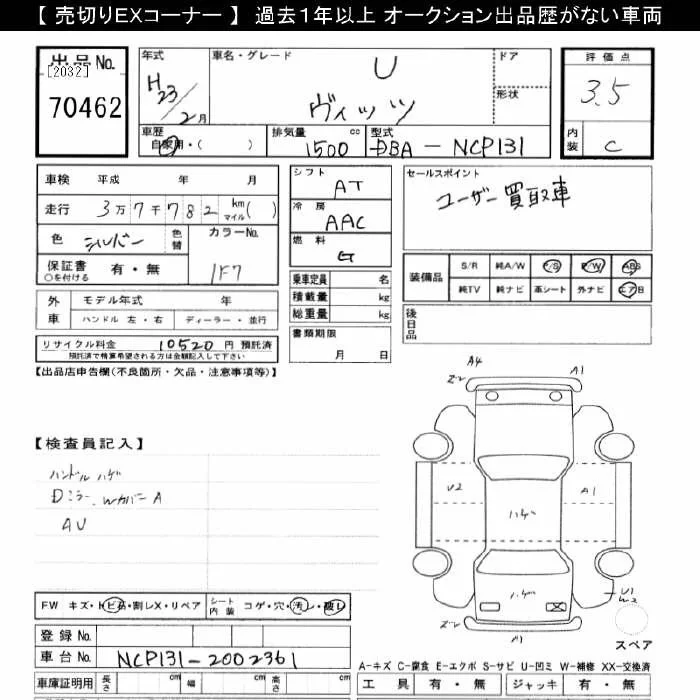 【 売切りEXコーナー 】 過去１年以上 オークション出品歴がない車両
出品No.
[2032]
70462
年式
H23/2月
車名・グレード
U
ヴィッツ
ドア
形状
評価点
3.5
車歴
自家用・( )
排気量
1500 cc
型式
DBA - NCP131
内装
C
車検 平成 年 月
走行 3万7千782 km マイル( )
色 シルバー 色替
カラーNo.
1F7
保証書 有・無
○を付ける
外車
モデル年式 年
ハンドル 左・右 ディーラー・並行
リサイクル料金 10520 円 預託済
預託済で精算希望される方は金額記入して下さい
シフト
AT
冷房
AAC
燃料
G
乗車定員 名
積載量 kg
総重量 kg
書類期限
月 日
セールスポイント
ユーザー買取車
装備品
S/R 純A/W P/S P/W ABS
純TV 純ナビ 革シート 外ナビ エアB
後日品
【出品店申告欄(不良箇所・欠品・注意事項等)】
【検査員記入】
ハンドル ハゲ
Dミラー Wカバー A
AU
A4
A1
U2
ハゲ
A1
U1
A1
スペア
FW キズ・トビ石・割レX・リペア
シート内装 コゲ・穴・汚レ・破レ
登録No.
車台No. NCP131-2002361
車庫証明用 長さ cm 幅 cm 高さ cm
A-キズ C-腐食 E-エクボ S-サビ U-凹ミ W-補修 XX-交換済
工具 有・無 ジャッキ 有・無